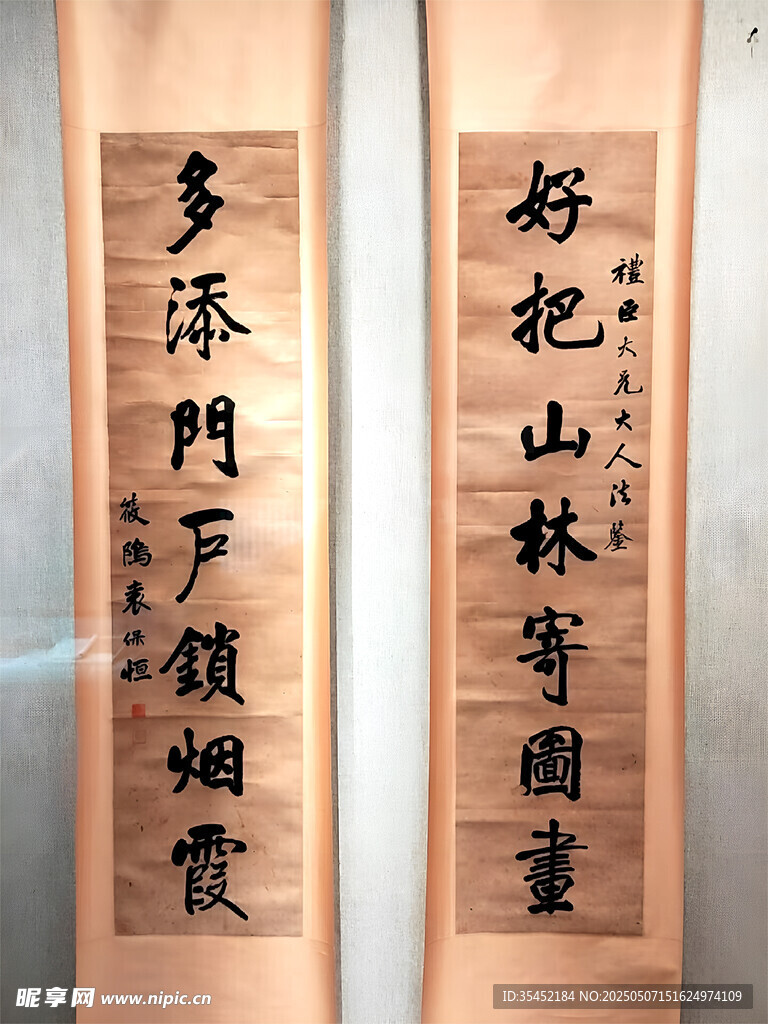 禮臣大兄大人法鑒
好把山林寄圖畫
多添門戶鎖烟霞
筱隝袁保恒
昵享网 www.nipic.cn
ID:35452184 NO:20250507151624974109